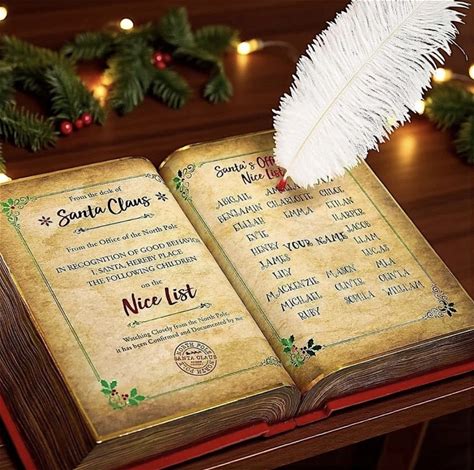 From the desk of
Santa Claus
From the Office of the North Pole
IN RECOGNITION OF GOOD BEHAVIOR
I, SANTA, HEREBY PLACE
THE FOLLOWING CHILDREN
on the
Nice List
Watching Closely from the North Pole,
it has been Confirmed and Documented by me
NORTH POLE
SANTA CLAUS
NORTH POLE
Santa's
Nice List
ABIGAIL
BENJAMIN CHARLOTTE CHLOE
ELIJAH EMMA ETHAN
EVIE HARPER
HENRY YOUR NAME JACOB
JAMES LIAM
LILY LUCAS
MACKENZIE MASON MIA OLIVIA
MICHAEL OLIVER SOPHIA WILLIAM
RUBY